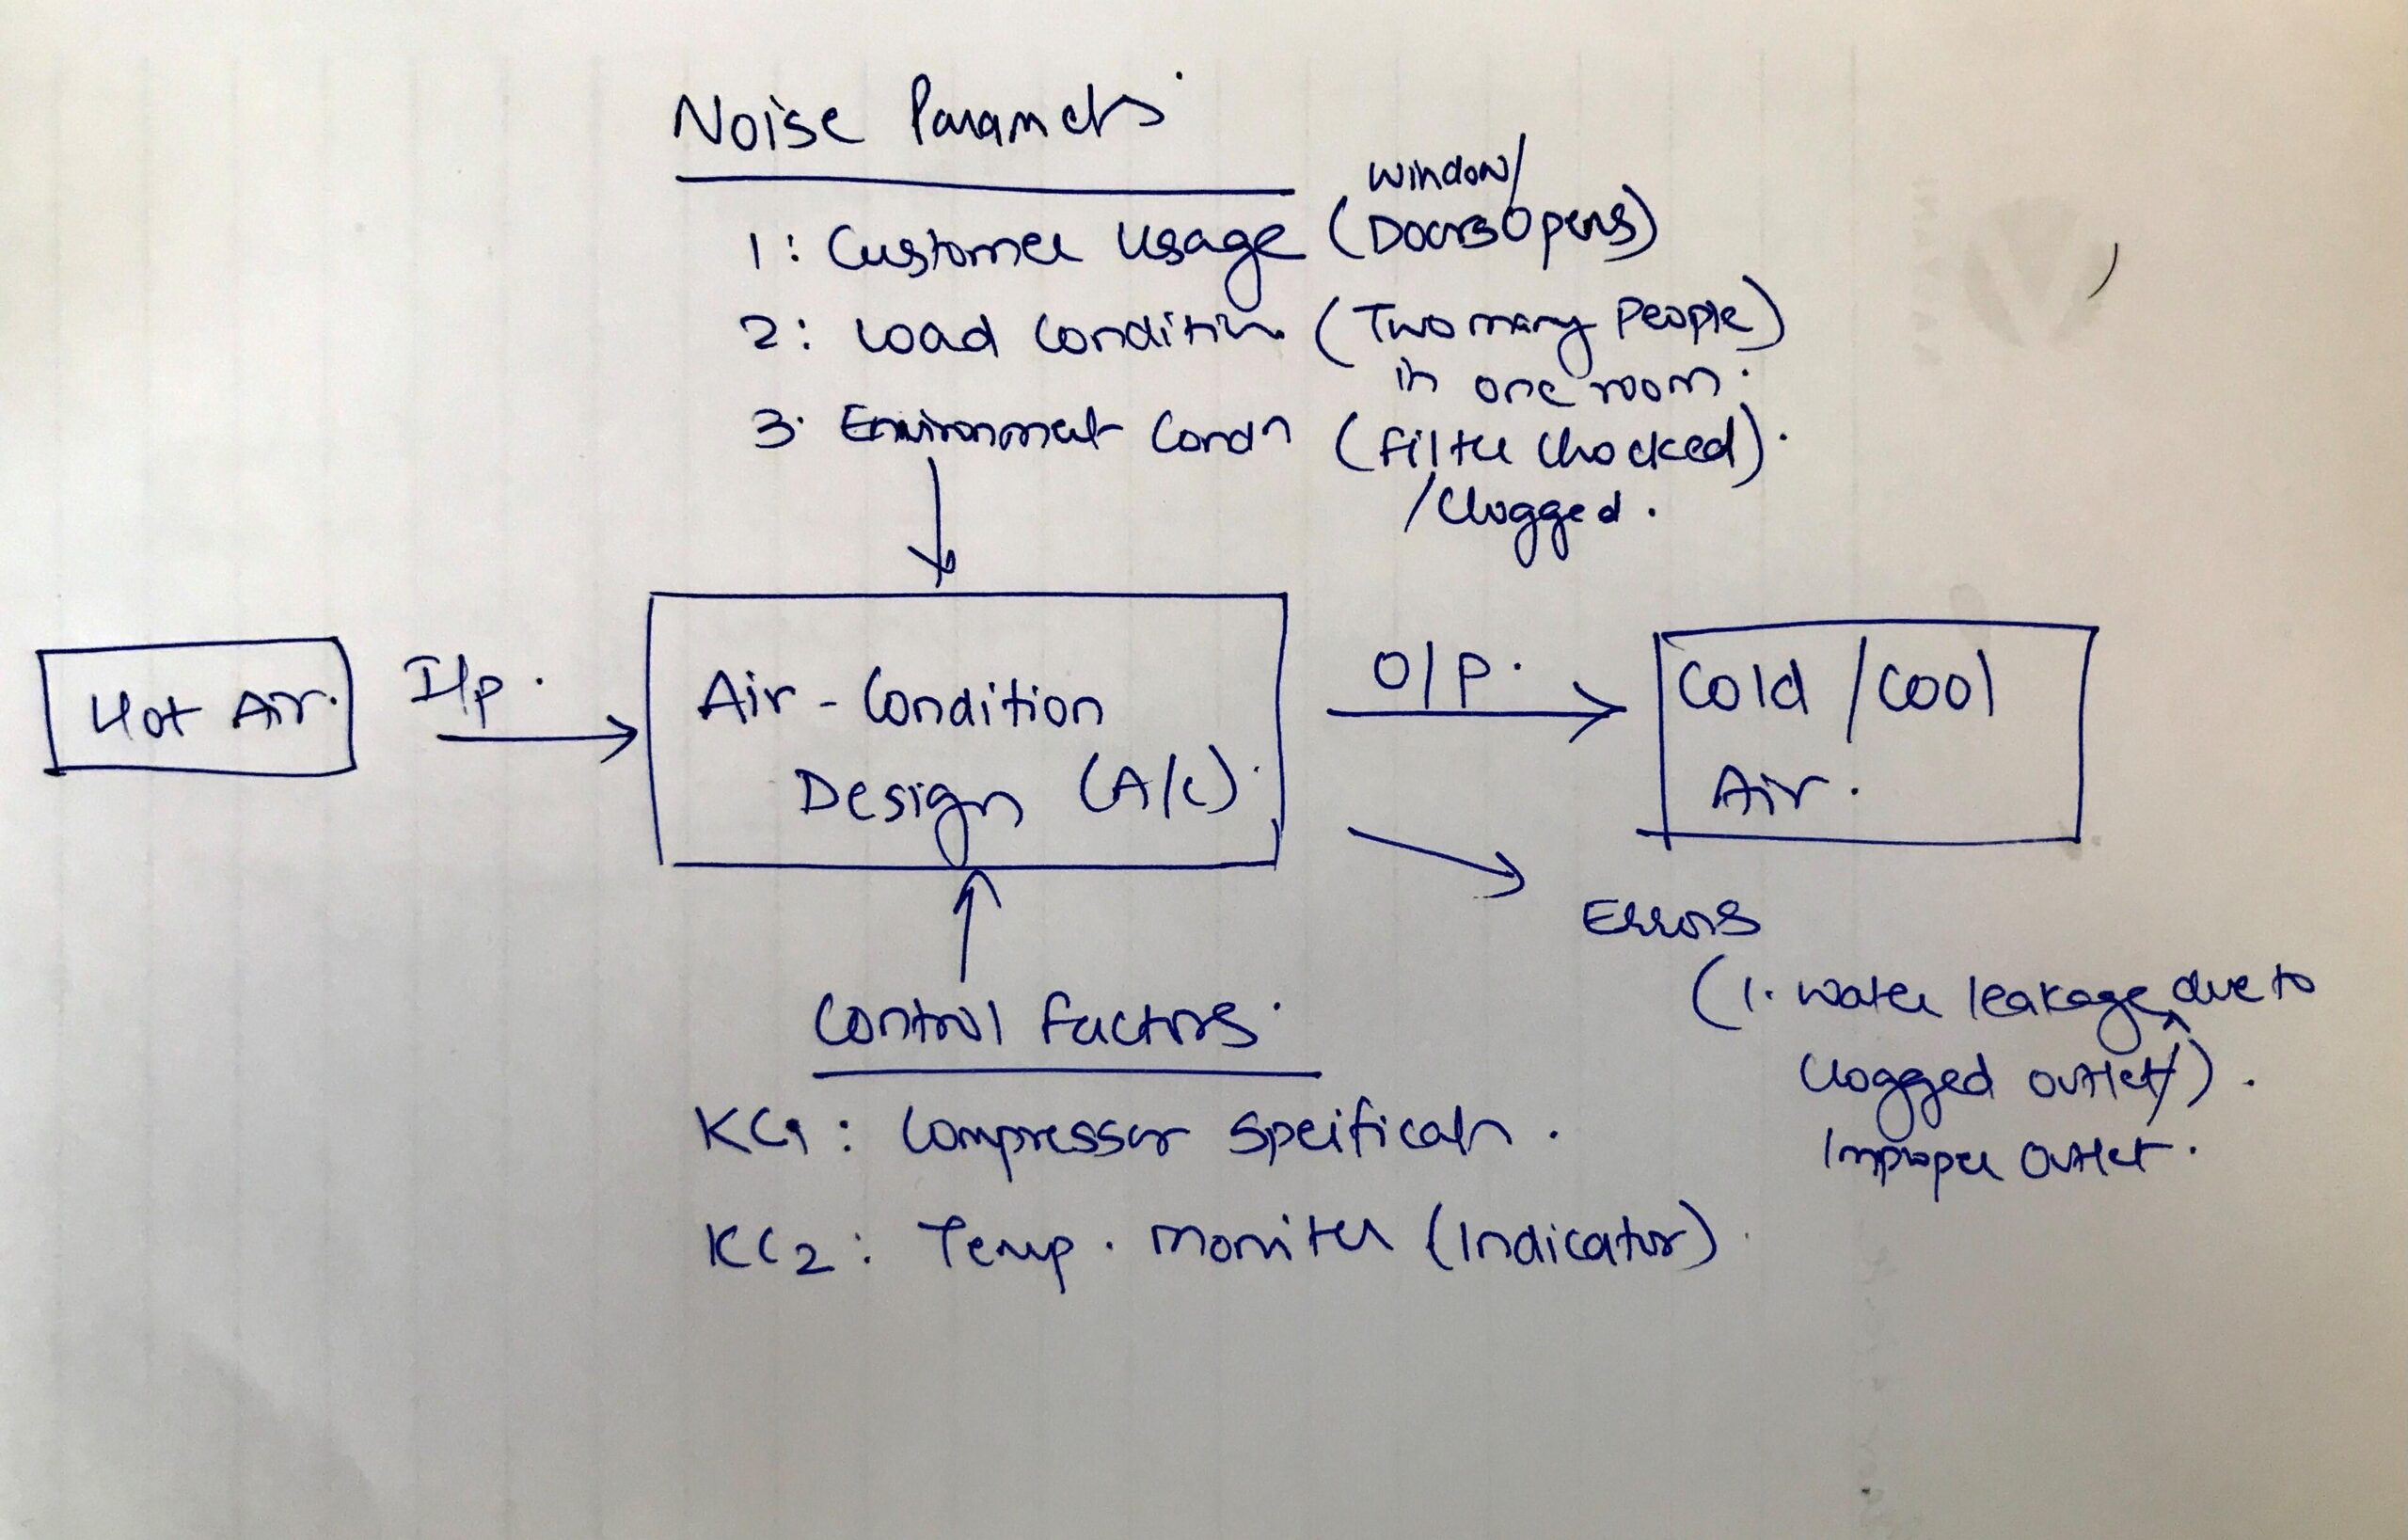 Noise Paramets
window/
1: Customer Usage (Doors Opens)
2: Load Condition (Two many People)
in one room.
3. Environment Condn (Filter Chocked).
/Clogged.
Hot Air.
I/p.
Air-Condition
Design (A/C).
O/P.
Cold/Cool
Air.
Errors
(1. Water leakage due to
Clogged outlet/).
Improper Outlet.
Control Factors.
KC1: Compressor Speificatn.
KC2: Temp. moniter (Indicator).